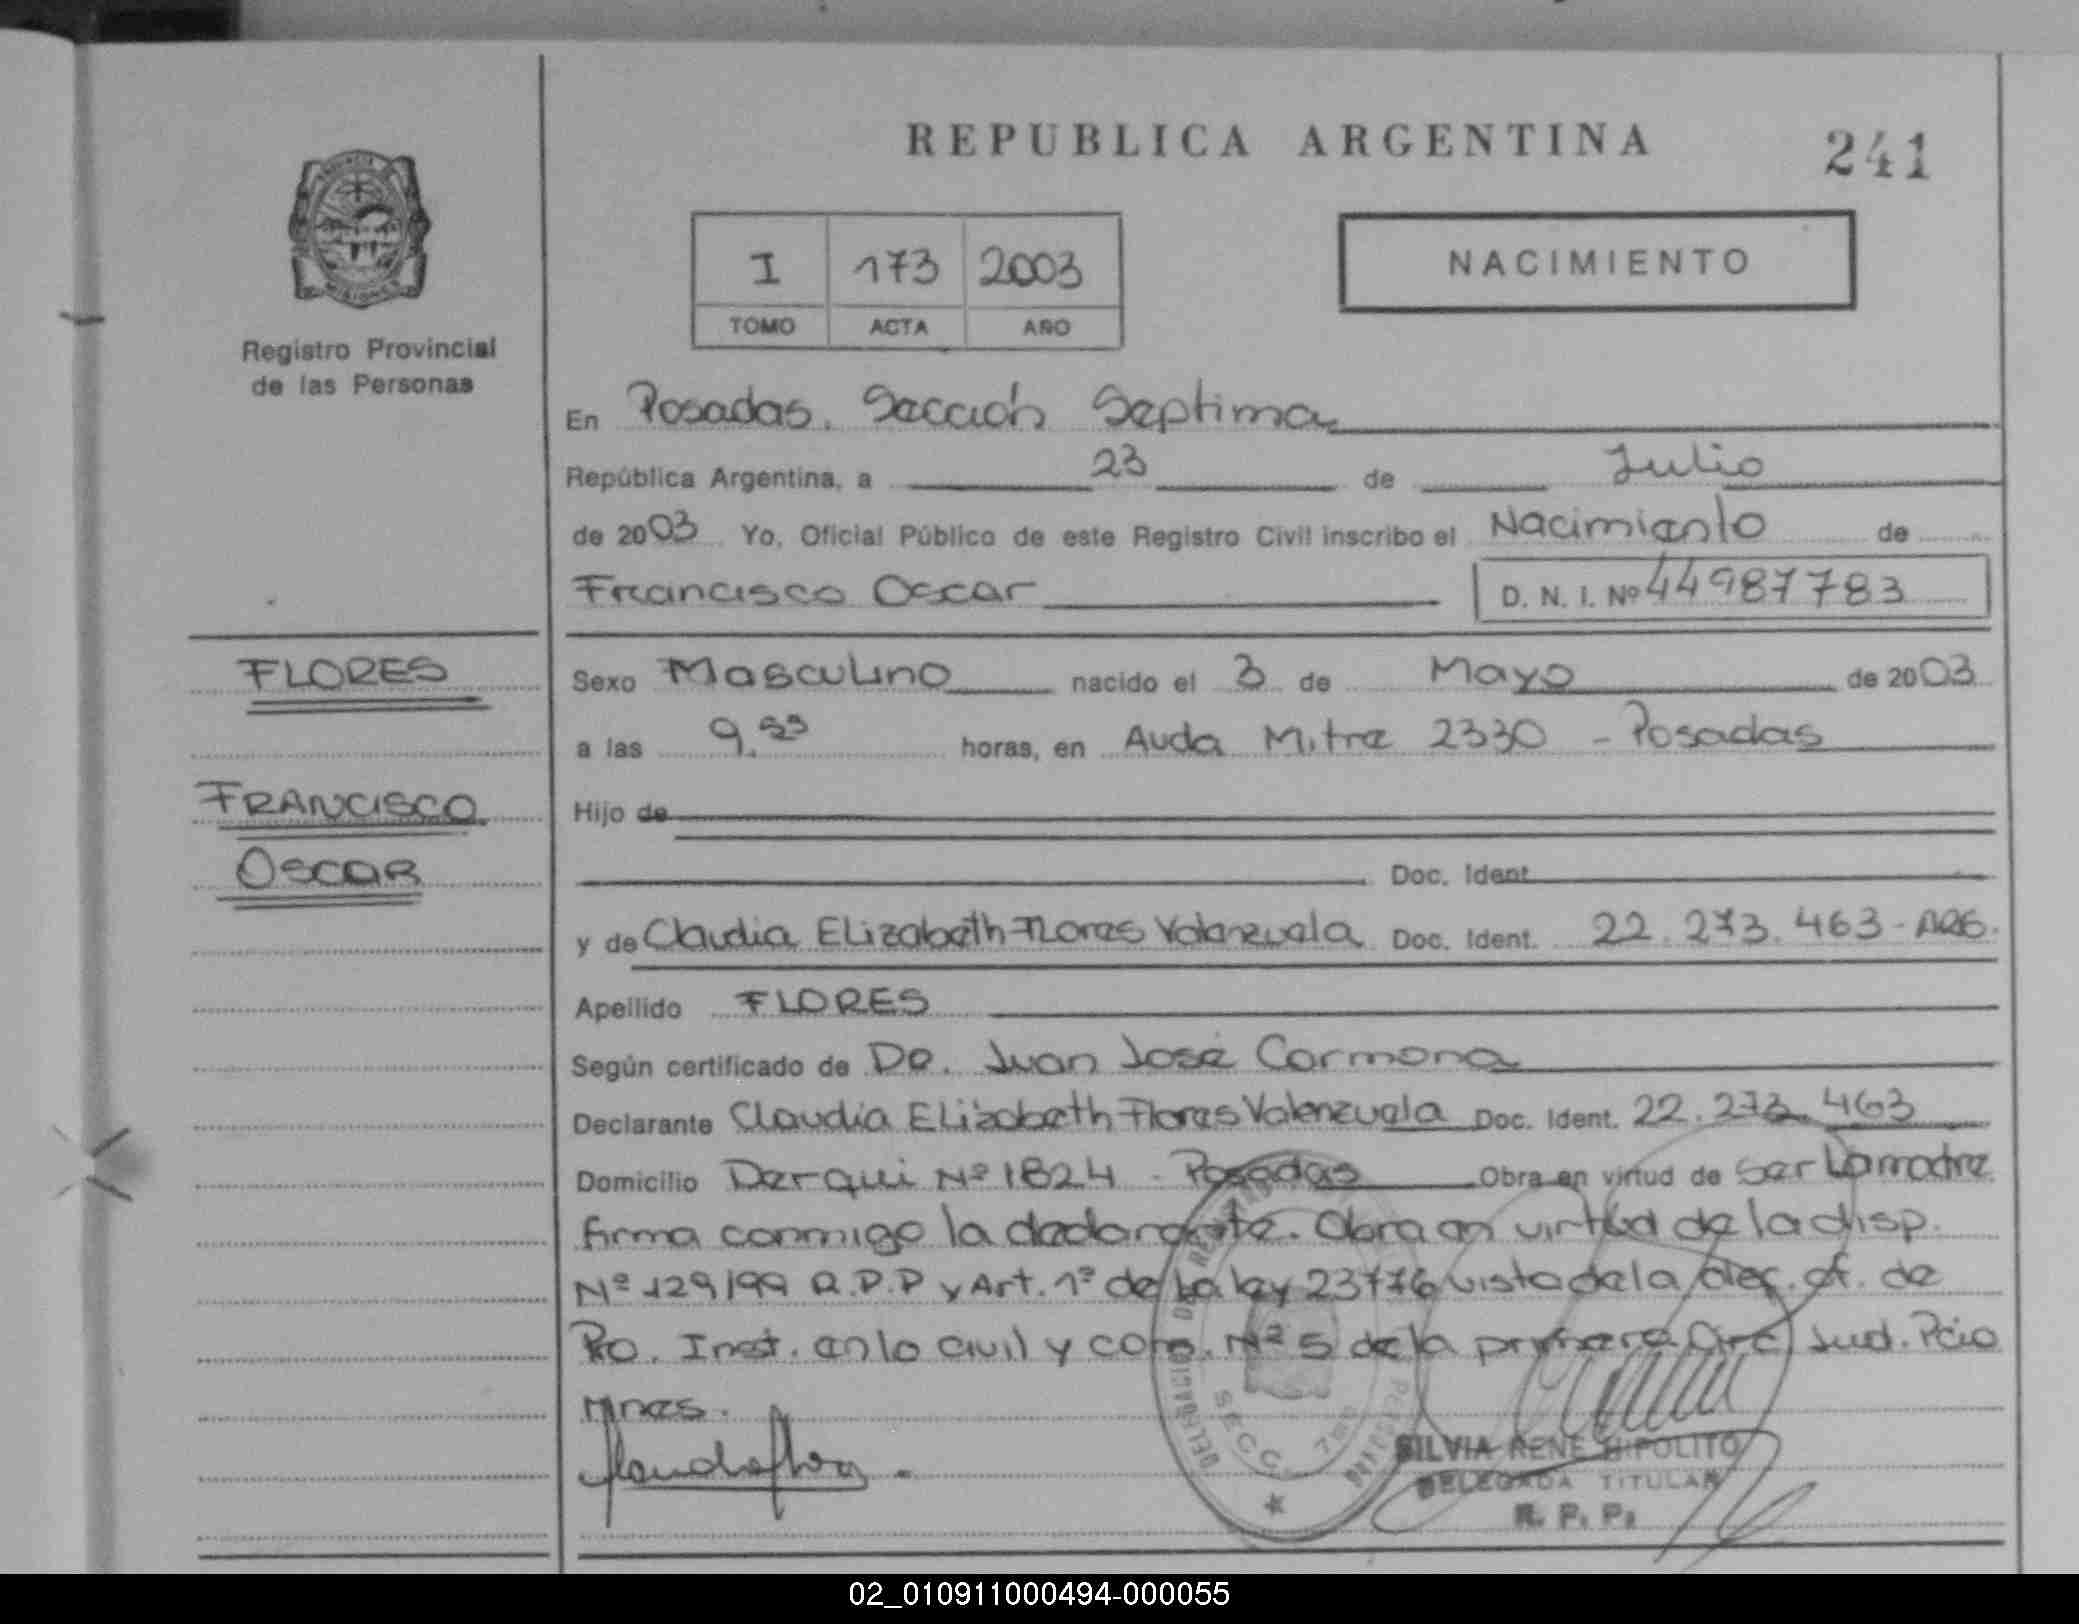 REPUBLICA ARGENTINA
241
I 173 2003
TOMO ACTA AÑO
NACIMIENTO
MISIONES
Registro Provincial
de las Personas
En Posadas. Sección Septima
República Argentina, a 23 de Julio
de 2003 Yo, Oficial Público de este Registro Civil inscribo el Nacimiento de
Francisco Oscar D. N. I. Nº 44987783
FLORES
FRANCISCO
OSCAR
Sexo Masculino nacido el 3 de Mayo de 2003
a las 9. horas, en Avda Mitre 2330 - Posadas
Hijo de
Doc. Ident
y de Claudia Elizabeth Flores Valenzuela Doc. Ident. 22.273.463 - ARG.
Apellido FLORES
Según certificado de Dr. Juan José Carmona
Declarante Claudia Elizabeth Flores Valenzuela Doc. Ident. 22.273.463
Domicilio Derqui Nº 1824 - Posadas Obra en virtud de ser la madre
firma conmigo la declarante. Obra en virtud de la disp.
Nº 129/99 R.P.P y Art. 1º de la ley 23776 vista de la of. de
Pro. Inst. en lo civil y com. Nº 5 de la primera Circ Jud. Pcia
Mnes.
SECC. 7ma
SILVIA RENE HIPOLITO
DELEGADA TITULAR
R. P. P.
02_010911000494-000055